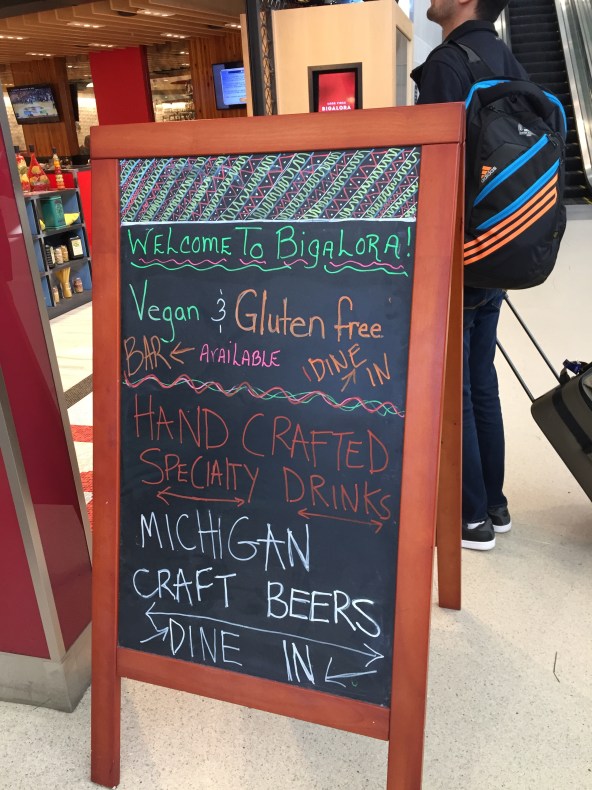 BIGALORA
WELCOME TO BIGALORA!
Vegan & Gluten free
BAR ← AVAILABLE DINE IN
HAND CRAFTED
SPECIALTY DRINKS
MICHIGAN
CRAFT BEERS
DINE IN